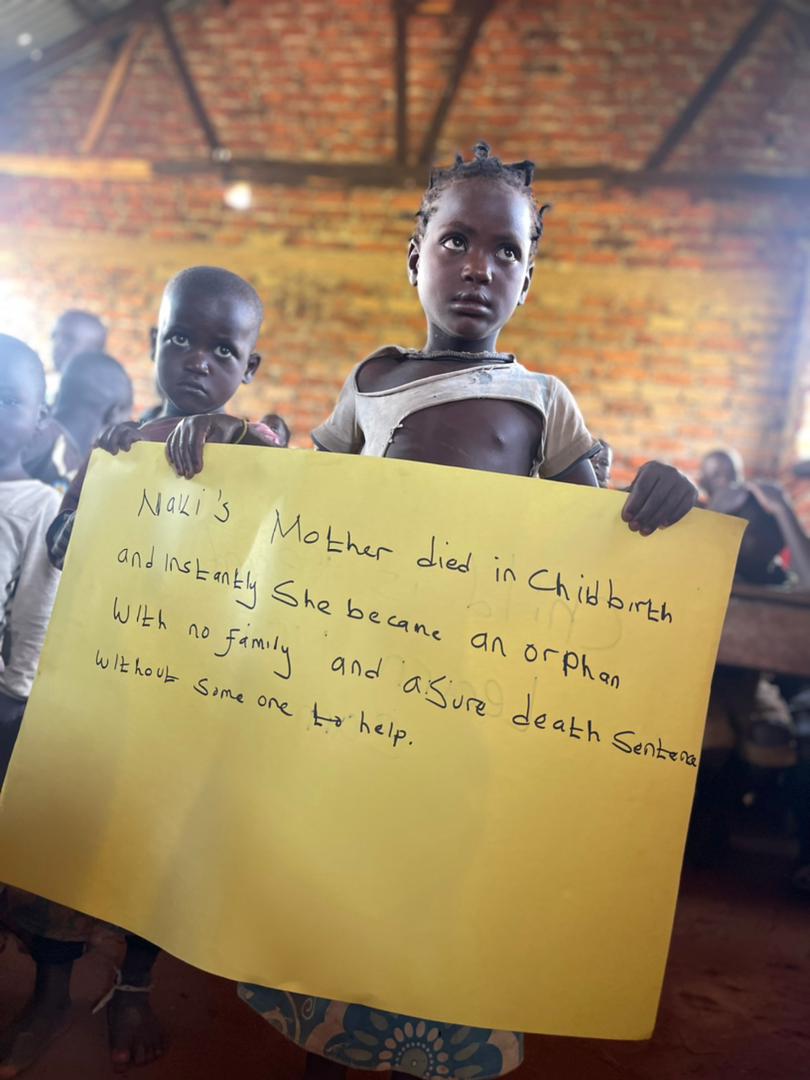 Naki's Mother died in Chidbirth
and instantly She became an orphan
With no family and a Sure death Sentence
Without Some one to help.